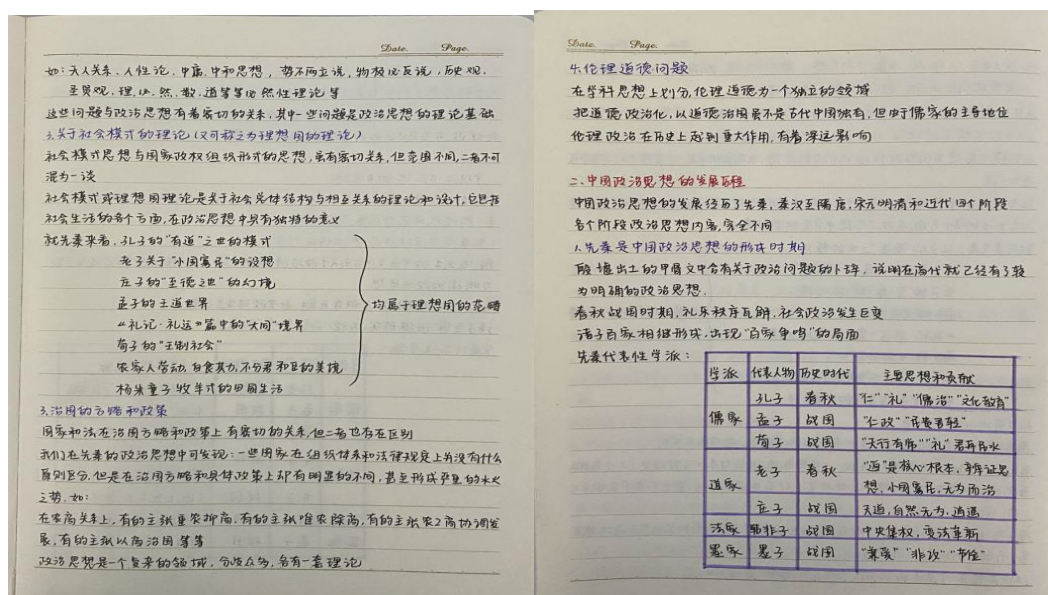 Date.    Page.
如：天人关系、人性论，中庸、中和思想，势不两立说，物极必反说，历史观，
圣贤观，理、必、然、数、道等等必然性理论等
这些问题与政治思想有着密切的关系，其中一些问题是政治思想的理论基础
2.关于社会模式的理论（又可称之为理想国的理论）
社会模式思想与国家政权组织形式的思想，虽有密切关系，但范围不同，二者不可
混为一谈
社会模式或理想国理论是关于社会总体结构与相互关系的理论和设计，它包括
社会生活的各个方面，在政治思想中具有独特的意义
就先秦来看，孔子的"有道"之世的模式
老子关于"小国寡民"的设想
庄子的"至德之世"的幻境
孟子的王道世界
《礼记·礼运》篇中的"大同"境界
荀子的"王制社会"
农家人劳动，自食其力，不分君和臣的美境
杨朱童子牧羊式的田园生活
均属于理想国的范畴
3.治国的方略和政策
国家和法在治国方略和政策上有密切的关系，但二者也存在区别
我们在先秦的政治思想中可发现：一些国家在组织体系和法律规定上并没有什么
原则区分，但是在治国方略和具体政策上却有明显的不同，甚至形成严重的水火
之势，如：
在农商关系上，有的主张重农抑商，有的主张唯农除商，有的主张农工商协调发
展，有的主张以商治国等等
政治思想是一个复杂的领域，分歧众多，各有一套理论
Date.    Page.
4.伦理道德问题
在学科思想上划分，伦理道德为一个独立的领域
把道德政治化，以道德治国虽不是古代中国独有，但由于儒家的主导地位
伦理政治在历史上起到重大作用，有着深远影响
二.中国政治思想的发展历程
中国政治思想的发展经历了先秦，秦汉至隋唐，宋元明清和近代四个阶段
各个阶段政治思想内容完全不同
1.先秦是中国政治思想的形成时期
殷墟出土的甲骨文中含有关于政治问题的卜辞，说明在商代就已经有了较
为明确的政治思想.
春秋战国时期，礼乐秩序瓦解，社会政治发生巨变
诸子百家相继形成，出现"百家争鸣"的局面
先秦代表性学派：
学派 代表人物 历史时代 主要思想和贡献
孔子 春秋 "仁""礼""儒治""文化教育"
儒家 孟子 战国 "仁政""民贵君轻"
荀子 战国 "天行有常""礼"君舟民水
老子 春秋 "道"是核心根本，辩证思
道家 想，小国寡民，无为而治
庄子 战国 天道，自然无为，逍遥
法家 韩非子 战国 中央集权，变法革新
墨家 墨子 战国 "兼爱""非攻""节俭"